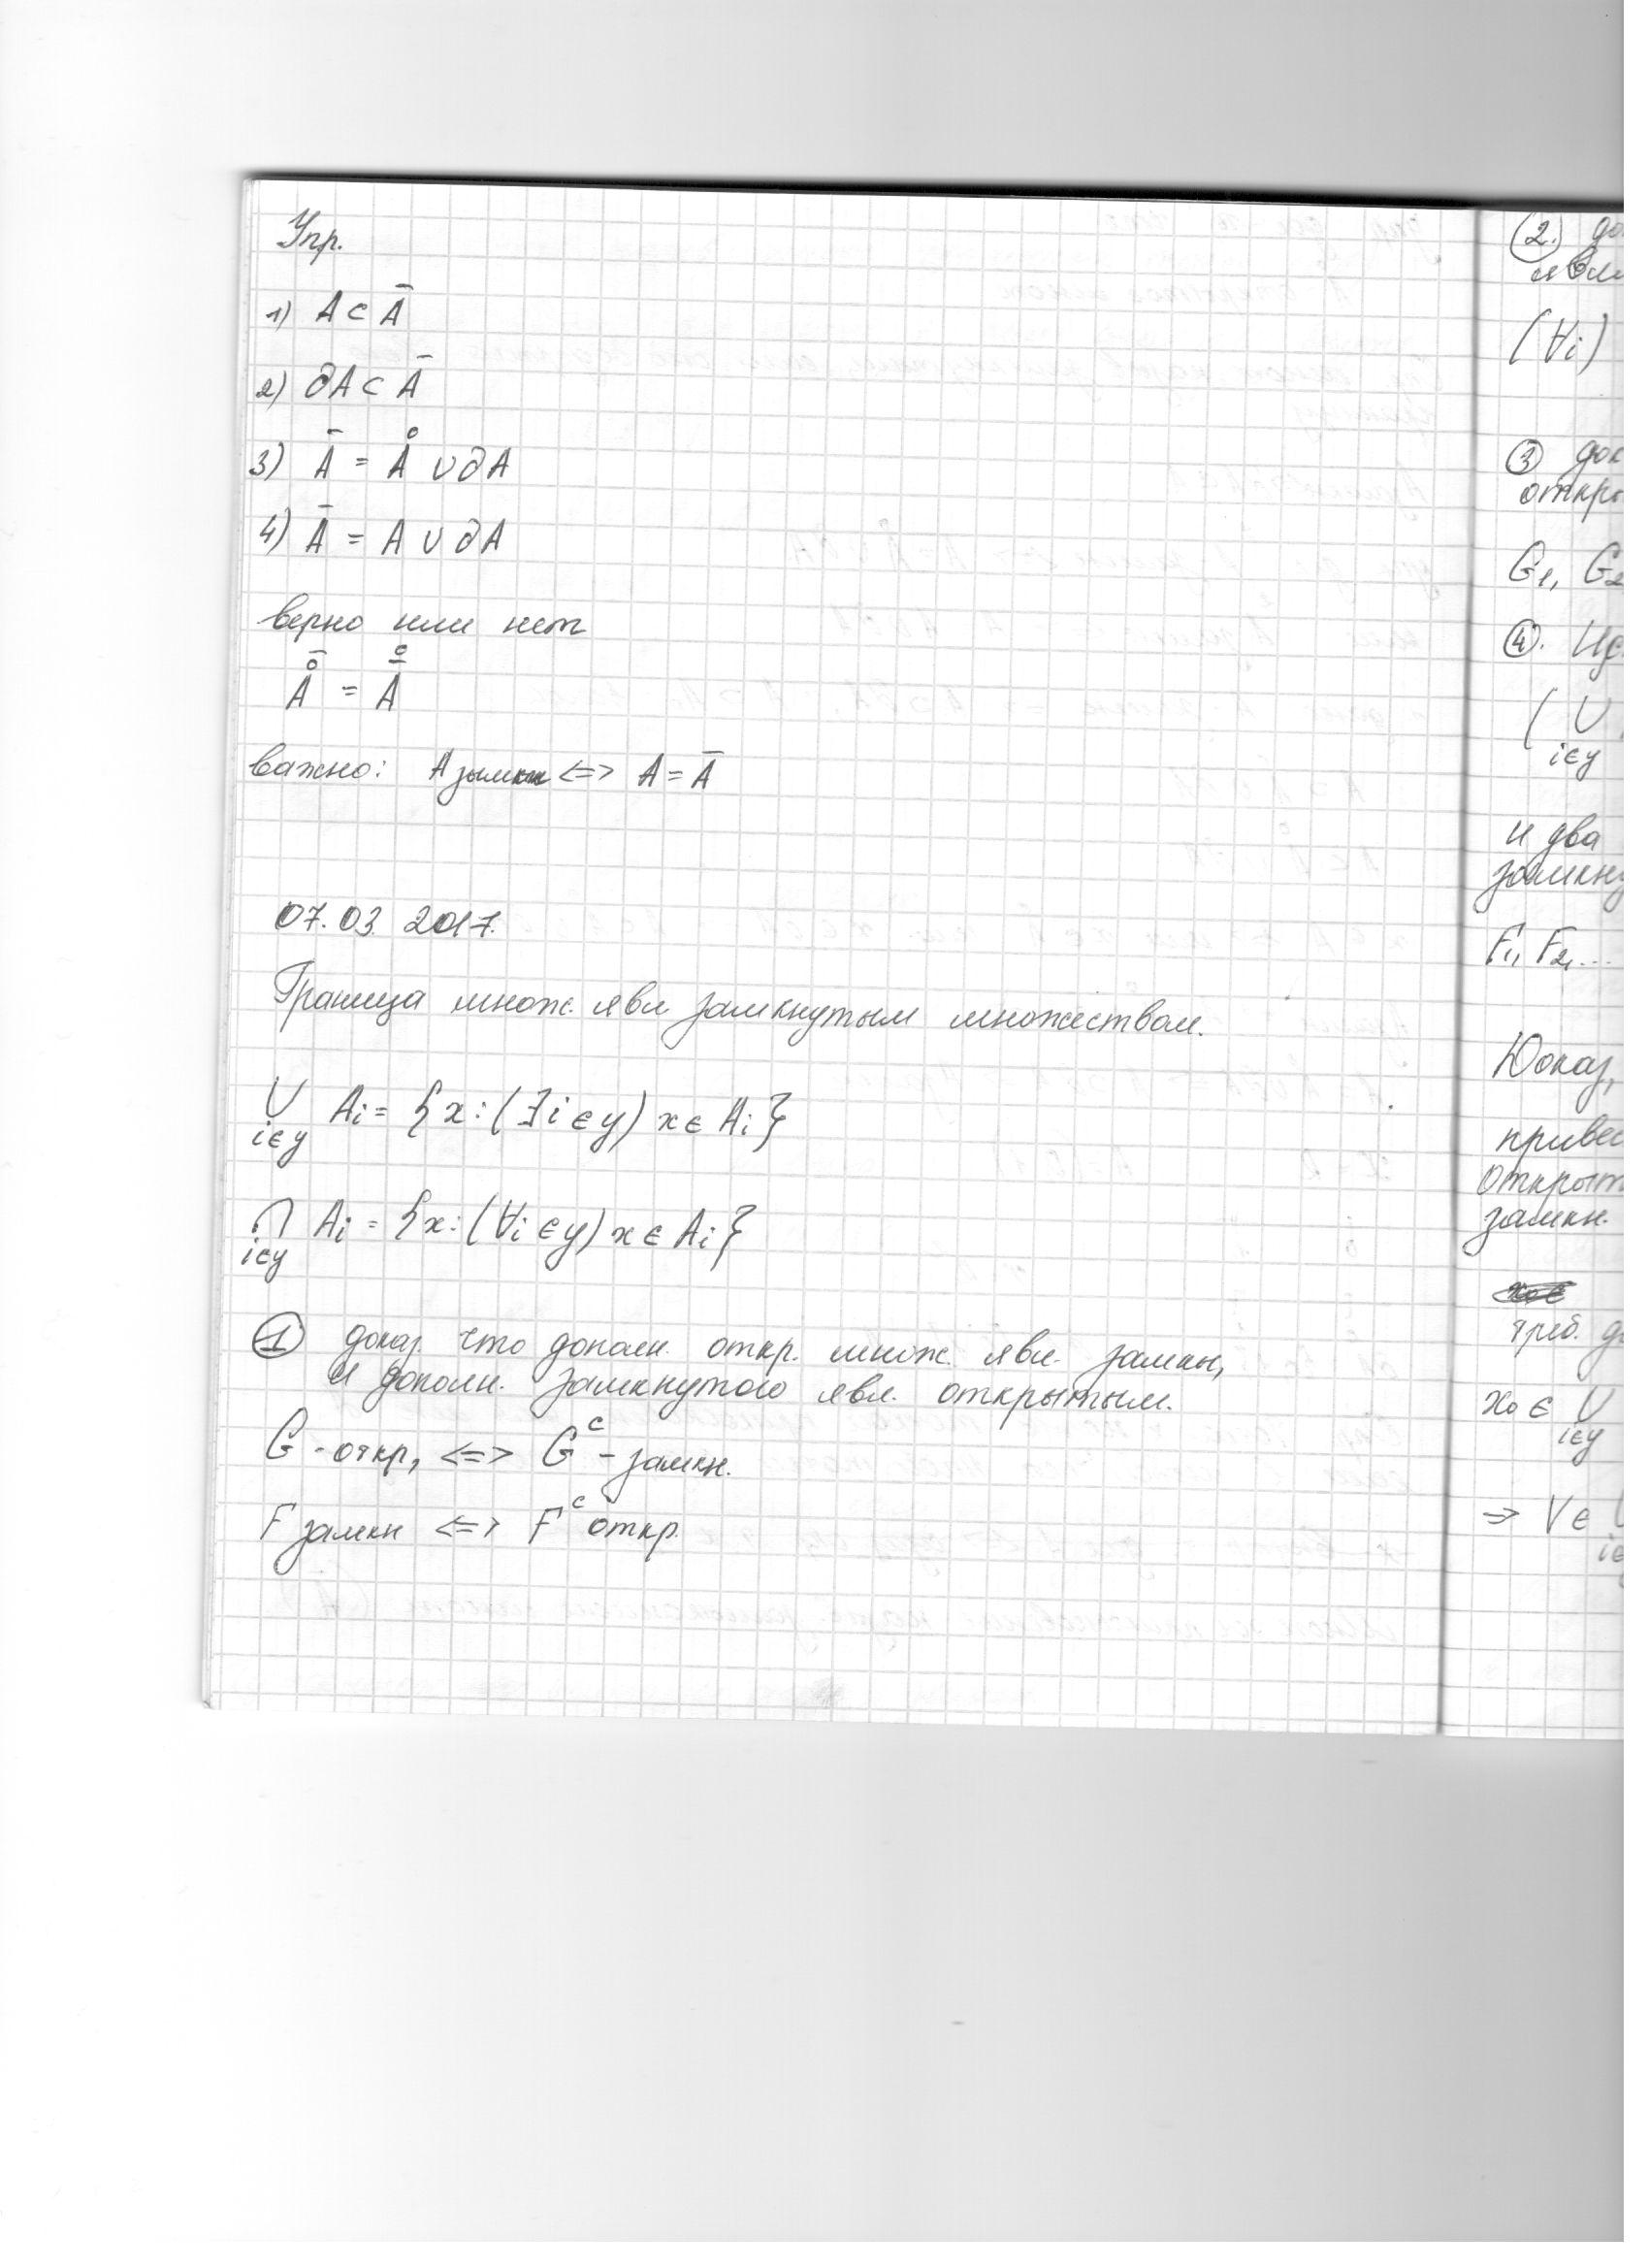 Упр.
1) A ⊂ Ā
2) ∂A ⊂ Ā
3) Ā = Å ∪ ∂A
4) Ā = A ∪ ∂A
верно или нет
Å̄ = Ā̊
важно: A замкн <=> A = Ā
07.03. 2017.
Граница множ. явл замкнутым множеством.
∪ Ai = {x: (∃i ∈ y) x ∈ Ai}
i∈y
∩ Ai = {x: (∀i ∈ y) x ∈ Ai}
i∈y
① доказ. что дополн. откр. множ. явл. замкн,
и дополн. замкнутого явл. открытым.
G - откр, <=> Gᶜ - замкн.
F замкн <=> Fᶜ откр.
②. до
явл
(∀i)
③ док
откры
G₁, G₂
④.
( ∪
i∈y
и два
замкну
F₁, F₂, ...
Докаj,
привес
открыт
замкн.
треб. д
x₀ ∈ ∪
i∈y
=> V ∈ ∪